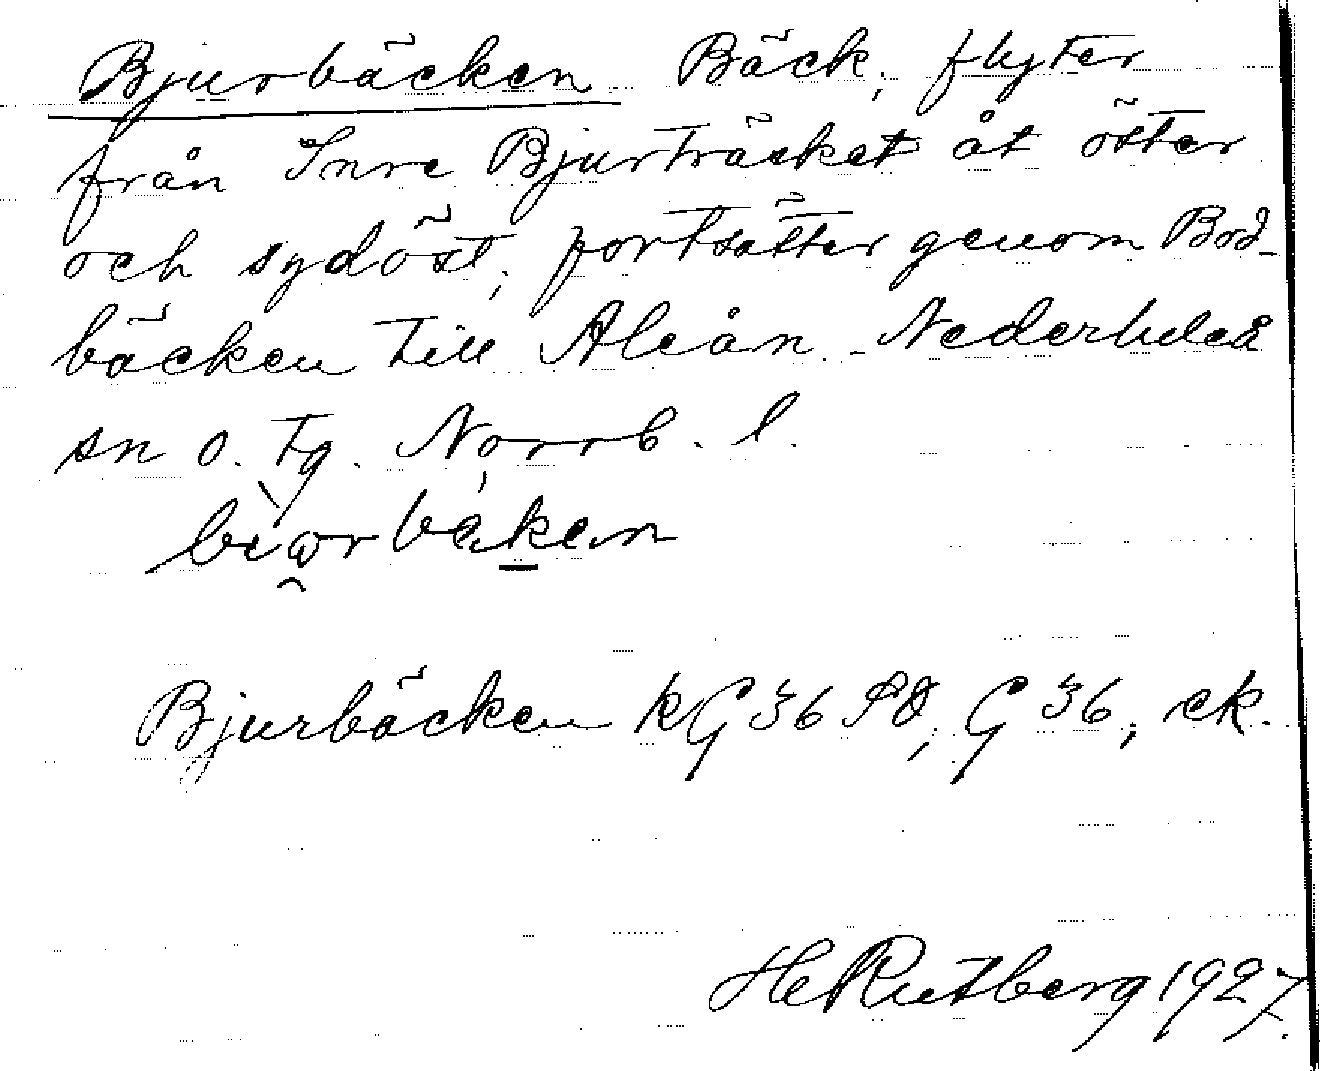 Bjurbäcken Bäck, flyter
från Inre Bjurträsket åt öster
och sydöst, fortsätter genom Bod-
bäcken till Aleån. Nederluleå
sn o. tg. Norrb. l.
Bjurbäcken kG 36 SO, G 36, ek.
H Rutberg 1927.